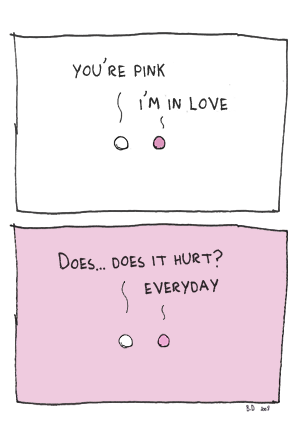 YOU'RE PINK
I'M IN LOVE
DOES... DOES IT HURT?
EVERYDAY
B.D